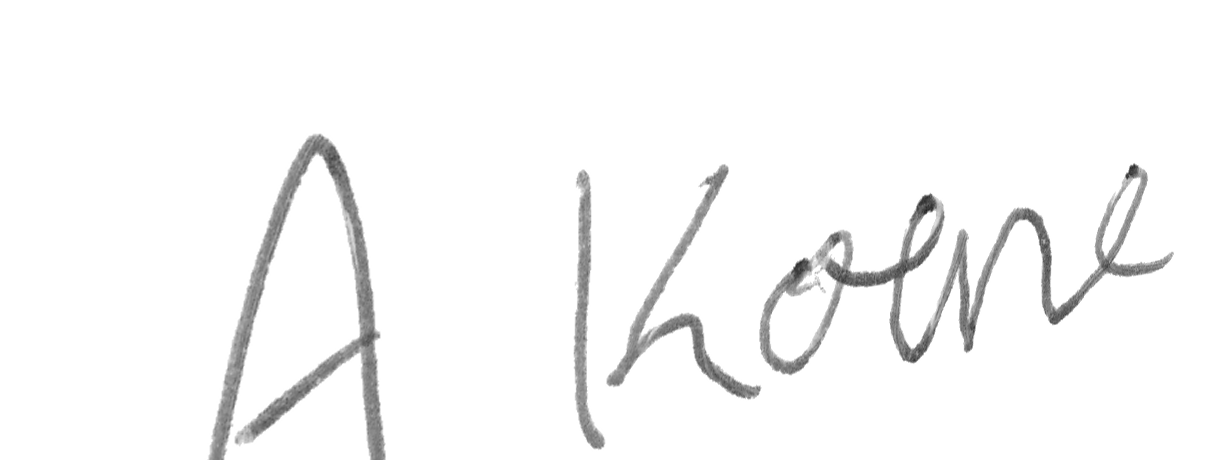 A Koene